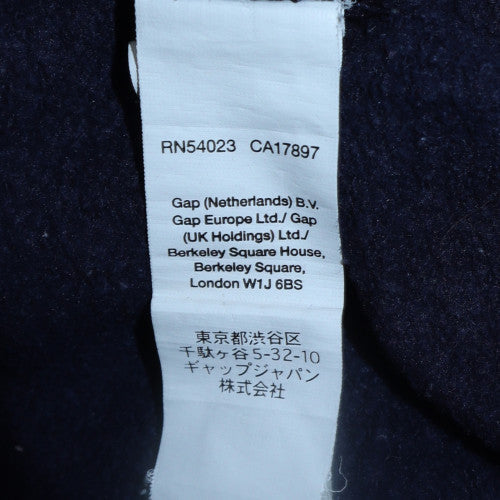 RN54023 CA17897
Gap (Netherlands) B.V.
Gap Europe Ltd./ Gap
(UK Holdings) Ltd./
Berkeley Square House,
Berkeley Square,
London W1J 6BS
東京都渋谷区
千駄ヶ谷5-32-10
ギャップジャパン
株式会社